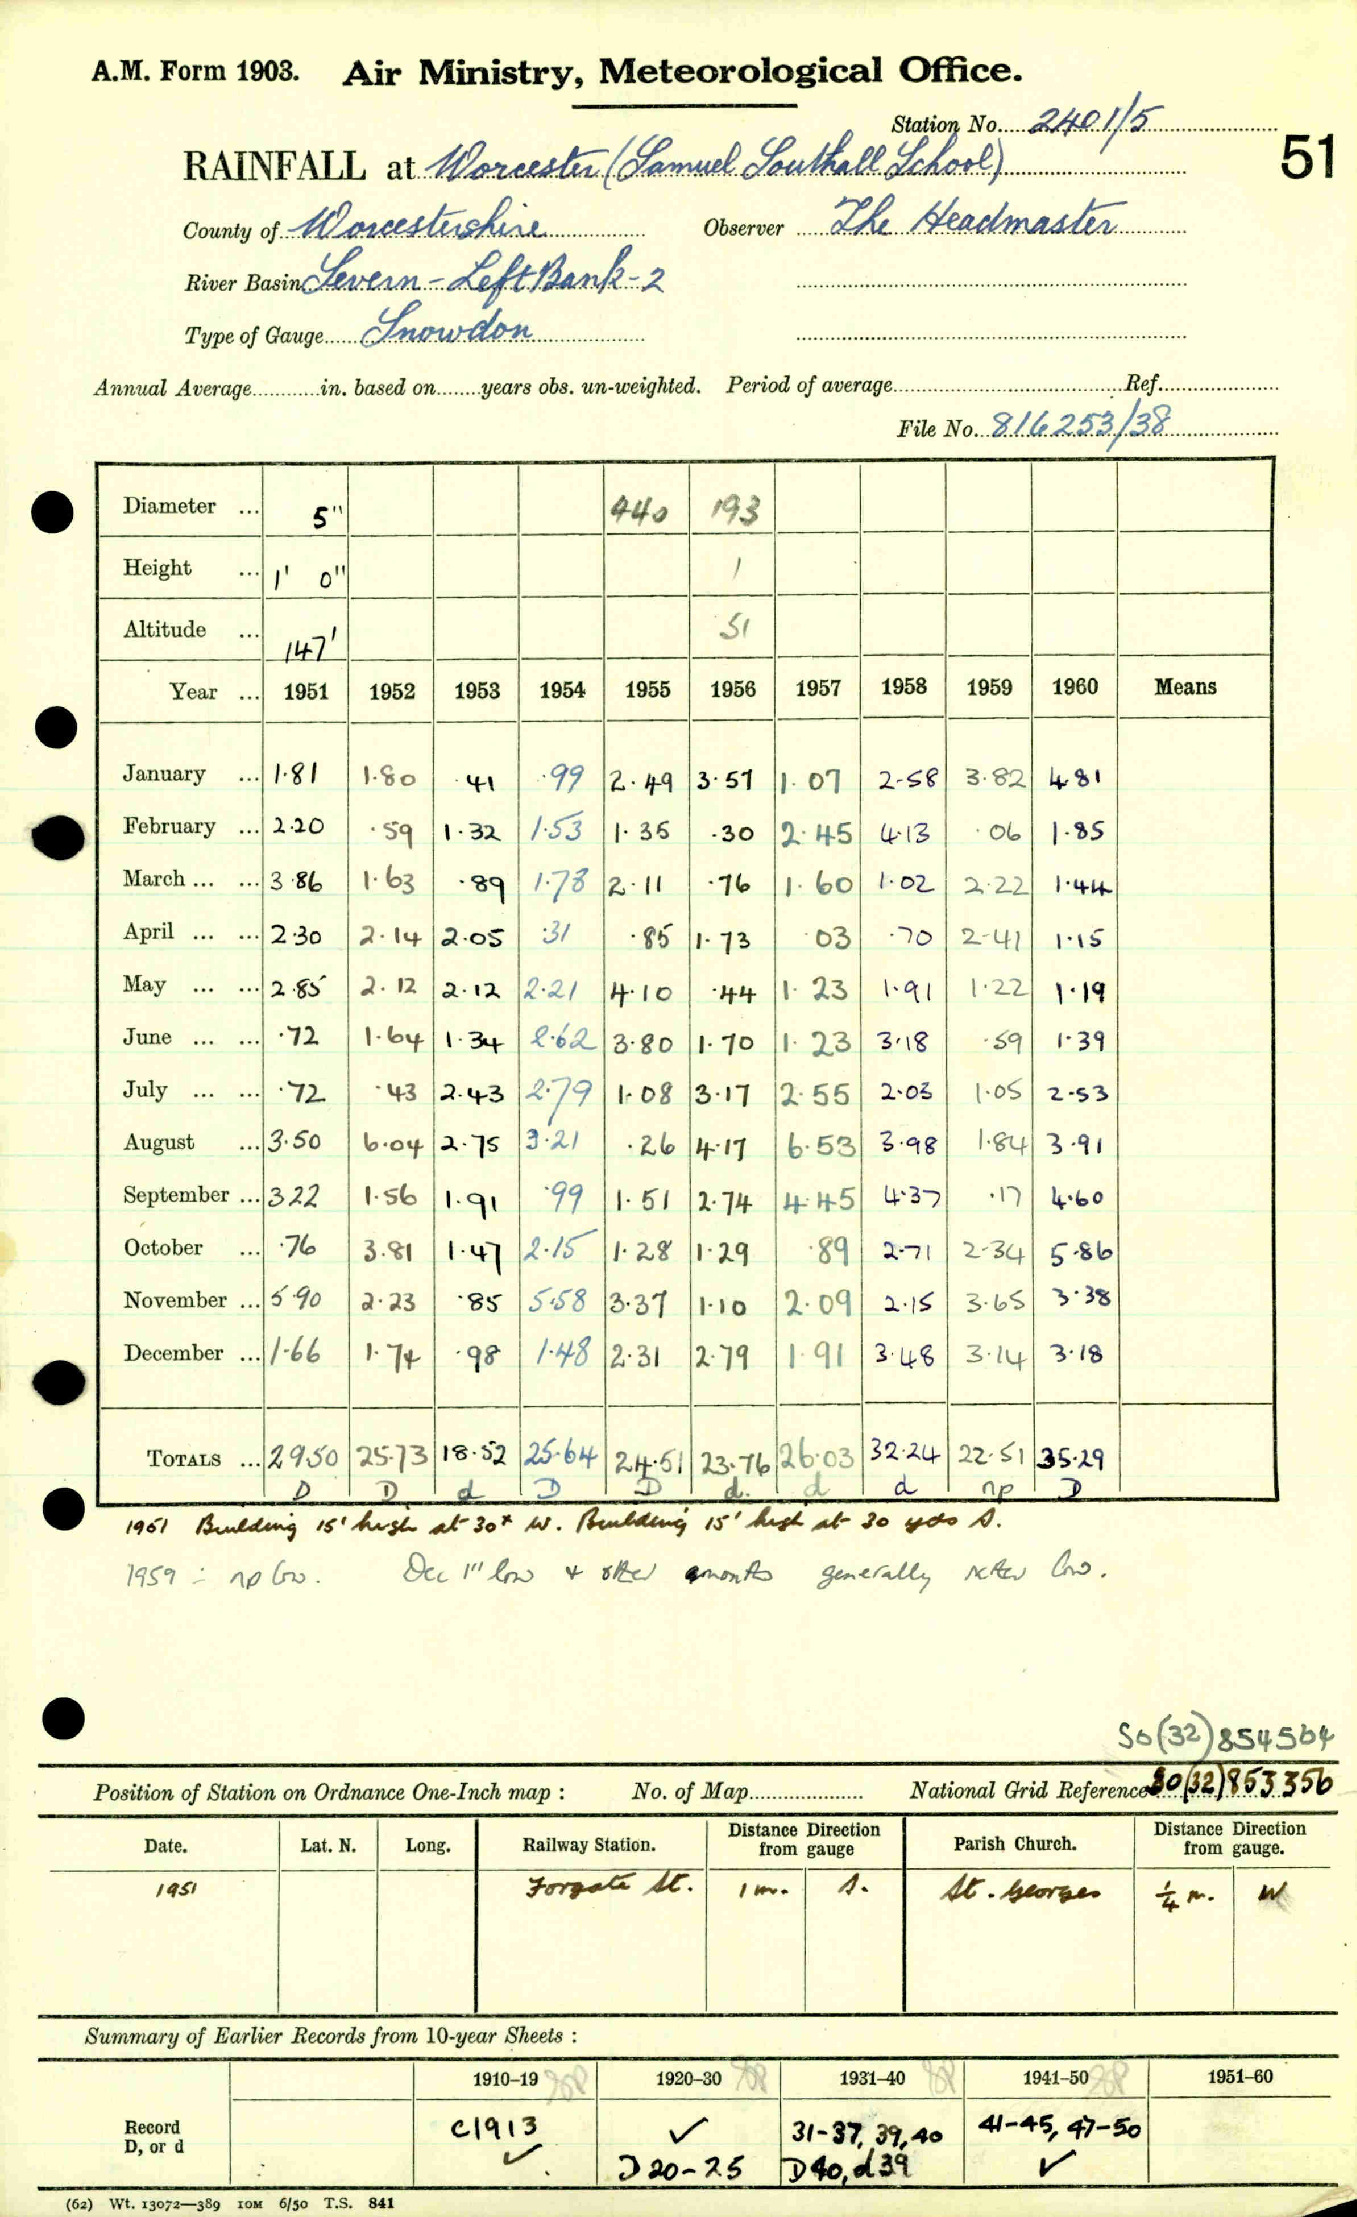 A.M. Form 1903. Air Ministry, Meteorological Office.
Station No. 2401/5
51
RAINFALL at Worcester (Samuel Southall School)
County of Worcestershire Observer The Headmaster
River Basin Severn - Left Bank - 2
Type of Gauge Snowdon
Annual Average in. based on years obs. un-weighted. Period of average Ref.
File No. 816253/38
Diameter ... 5" 440 193
Height ... 1' 0" 1
Altitude ... 147' 51
Year ... 1951 1952 1953 1954 1955 1956 1957 1958 1959 1960 Means
January ... 1·81 1·80 ·41 ·99 2·49 3·57 1·07 2·58 3·82 4·81
February ... 2·20 ·59 1·32 1·53 1·35 ·30 2·45 4·13 ·06 1·85
March ... ... 3·86 1·63 ·89 1·78 2·11 ·76 1·60 1·02 2·22 1·44
April ... ... 2·30 2·14 2·05 ·31 ·85 1·73 03 ·70 2·41 1·15
May ... ... 2·85 2·12 2·12 2·21 4·10 ·44 1·23 1·91 1·22 1·19
June ... ... ·72 1·64 1·34 2·62 3·80 1·70 1·23 3·18 ·59 1·39
July ... ... ·72 ·43 2·43 2·79 1·08 3·17 2·55 2·03 1·05 2·53
August ... 3·50 6·04 2·75 3·21 ·26 4·17 6·53 3·98 1·84 3·91
September ... 3·22 1·56 1·91 ·99 1·51 2·74 4·45 4·37 ·17 4·60
October ... ·76 3·81 1·47 2·15 1·28 1·29 ·89 2·71 2·34 5·86
November ... 5·90 2·23 ·85 5·58 3·37 1·10 2·09 2·15 3·65 3·38
December ... 1·66 1·74 ·98 1·48 2·31 2·79 1·91 3·48 3·14 3·18
TOTALS ... 29·50 25·73 18·52 25·64 24·51 23·76 26·03 32·24 22·51 35·29
D D d D D d. d d np D
1951 Building 15' high at 30x W. Building 15' high at 30 yds S.
1959 :- np low. Dec 1" low + other months generally rather low.
SO(32)854564
Position of Station on Ordnance One-Inch map : No. of Map National Grid Reference SO(32)853356
Date. Lat. N. Long. Railway Station. Distance Direction from gauge Parish Church. Distance Direction from gauge.
1951 Forgate St. 1 m. S. St. Georges ¼ m. W
Summary of Earlier Records from 10-year Sheets :
1910–19 1920–30 1931–40 1941–50 1951–60
Record c1913 ✓ 31-37, 39, 40 41-45, 47-50
D, or d ✓ D 20-25 D40, d39 ✓
(62) Wt. 13072—389 10M 6/50 T.S. 841